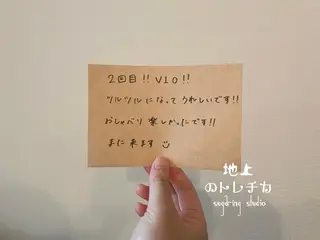 2回目!! VIO!!
ツルツルになってうれしいです!!
おしゃべり楽しかったです!!
また来ます☺
地上
のトレチカ
sugaring studio